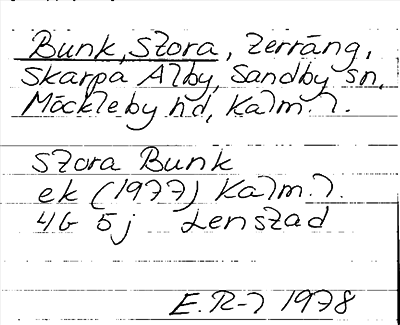 Bunk, Stora, terräng,
Skarpa Alby, Sandby sn,
Möckleby hd, Kalm. l.
Stora Bunk
ek (1977) Kalm. l.
4G 5j Lenstad
E. R-l 1978